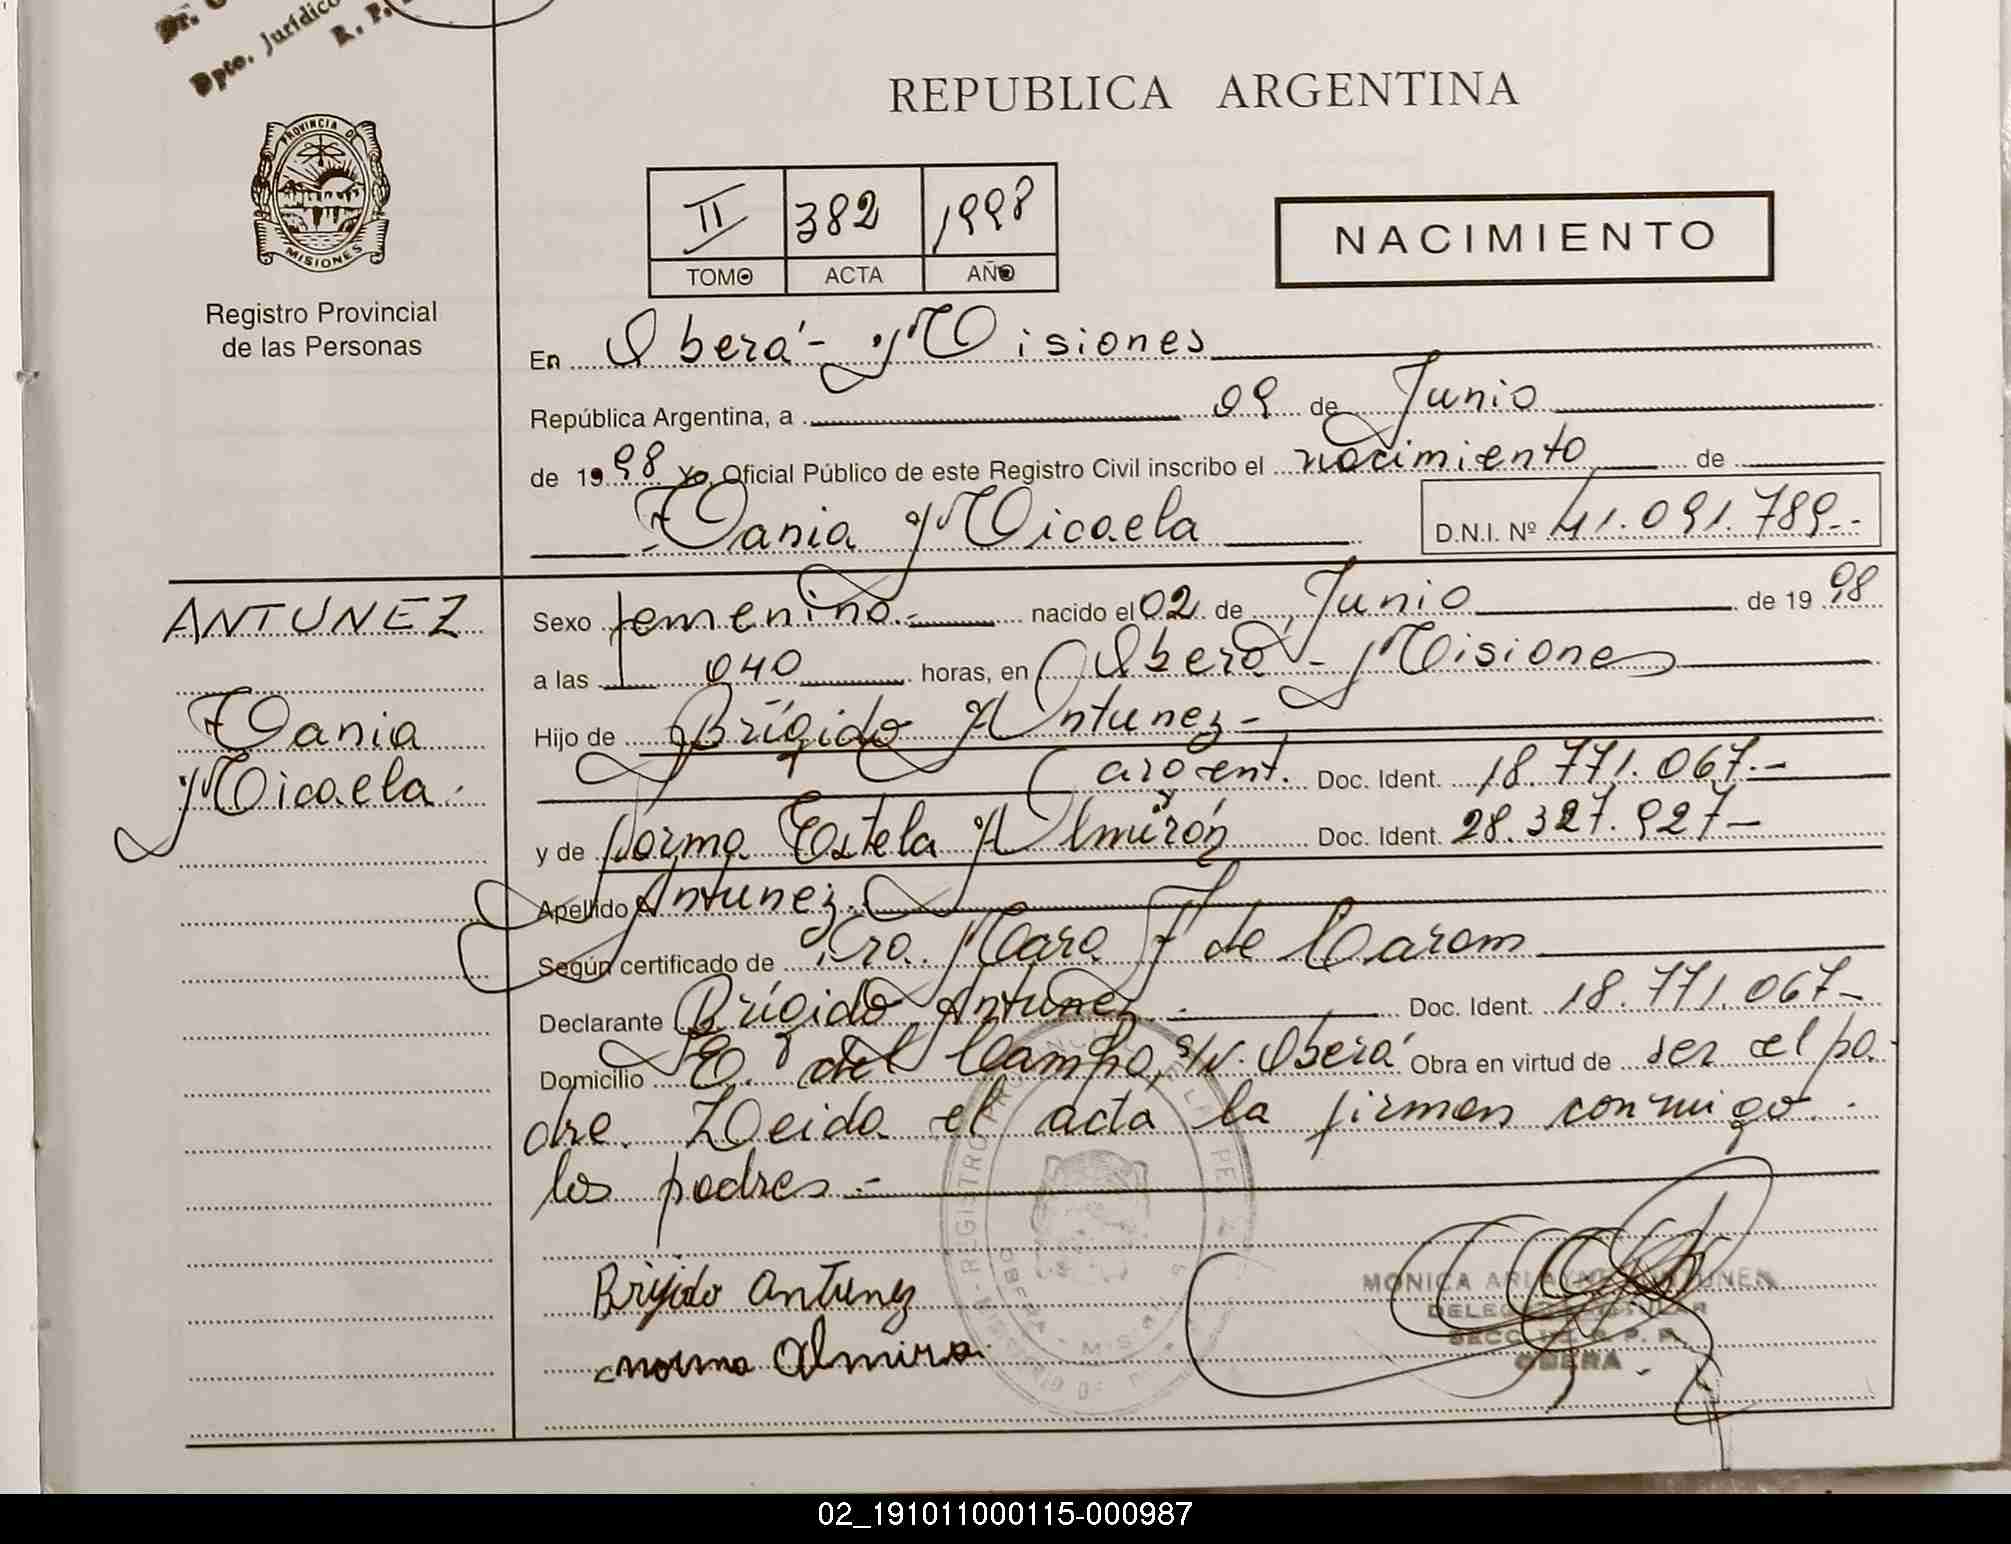 Dr.
Dpto. Jurídico
R. P.
REPUBLICA ARGENTINA
PROVINCIA DE
MISIONES
Registro Provincial
de las Personas
II 382 1998
TOMO ACTA AÑO
NACIMIENTO
En Oberá - Misiones
República Argentina, a 09 de Junio
de 1998 Yo, Oficial Público de este Registro Civil inscribo el nacimiento de
Tania Micaela D.N.I. Nº 41.091.789--
ANTUNEZ
Tania
Micaela.
Sexo femenino.- nacido el 02 de Junio de 1998
a las 040 horas, en Oberá - Misiones
Hijo de Brígido Antunez-
argent. Doc. Ident. 18.771.067.-
y de Norma Estela Almirón Doc. Ident. 28.327.927-
Apellido Antunez.
Según certificado de Dra. Mara F de Carom
Declarante Brígido Antunez.- Doc. Ident. 18.771.067-
Domicilio E. del Campo, s/N. Oberá Obra en virtud de ser el pa-
dre. Leida el acta la firman conmigo
los padres.-
Brijido Antunez
norma Almiro
MONICA
OBERA
02_191011000115-000987